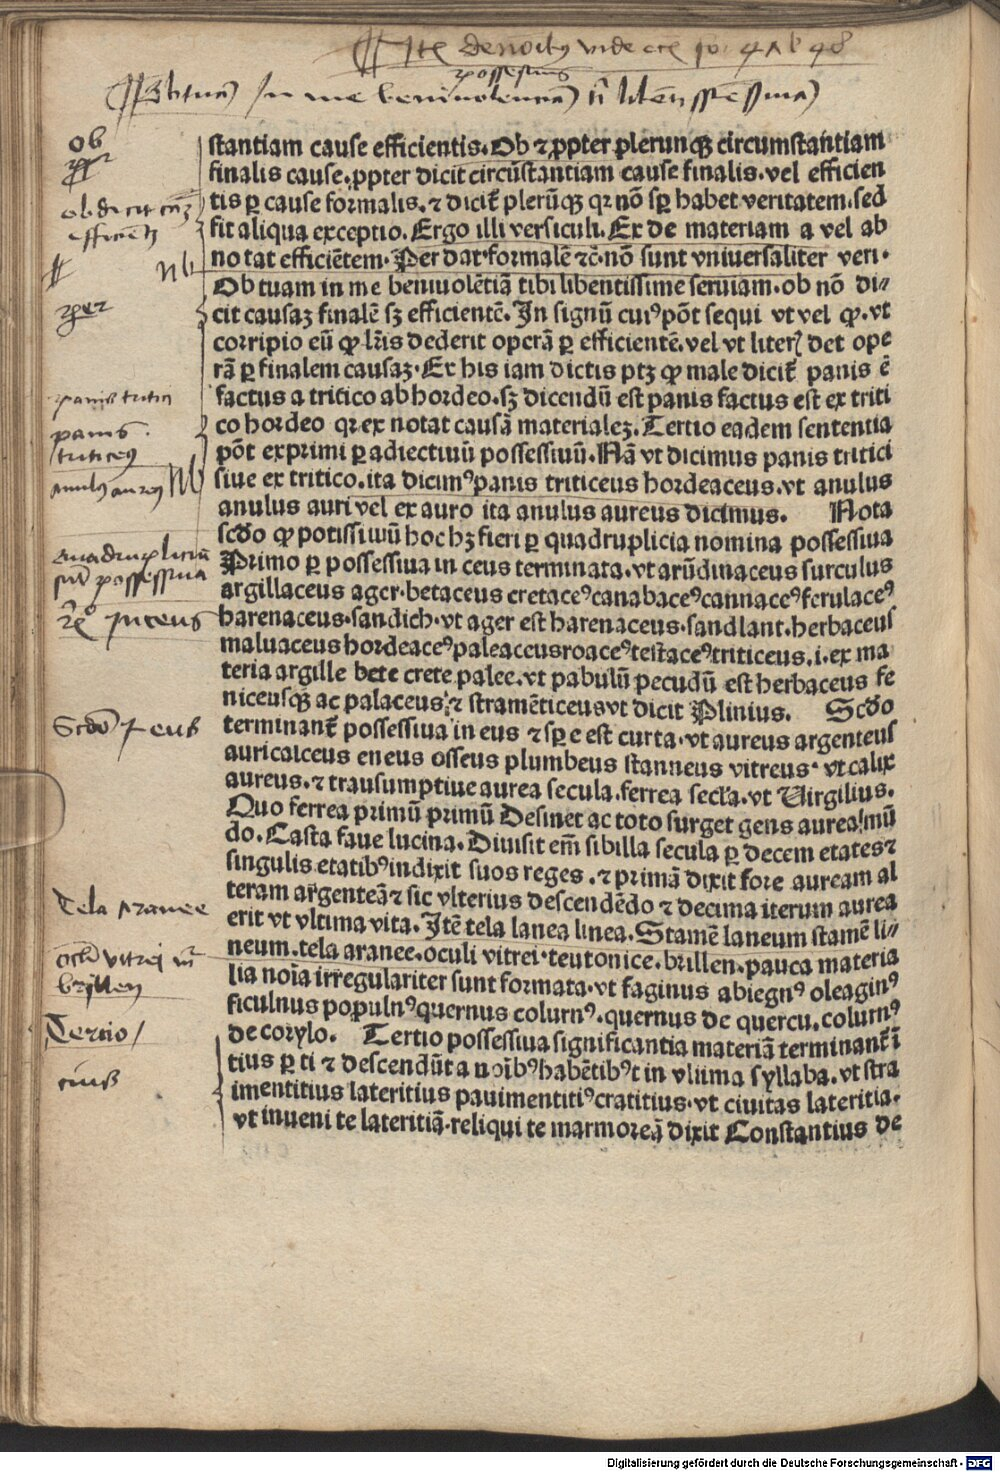 Ob tuam in me beniuolenciam
possessiuis
ob
ꝓpter
ob dicit cāz
efficientꝫ
Nb
per
panis tritici
panis
triticeꝰ
anulꝰ aureꝰ Nb
quadruplicia
sūt possessiua
in ceus
Scd̄o in eus
Tela aranee
oculi vitrei
bryllen
Tercio
cius
stantiam cause efficientis. Ob ⁊ ꝓpter plerunqꝫ circumstantiam
finalis cause. ꝓpter dicit circūstantiam cause finalis. vel efficien
tis ꝑ cause formalis. ⁊ dicit̄ plerūqꝫ qꝛ nō sꝑ habet veritatem. sed
fit aliqua exceptio. Ergo illi versiculi. Ex de materiam a vel ab
no tat efficiētem. Per dat formalē ⁊c̄ nō sunt vniuersaliter veri.
Ob tuam in me beniuolētiā tibi libentissime seruiam. ob nō di⸗
cit causaꝫ finalē sꝫ efficientē. In signū cuiꝰ pōt sequi vt vel ꝙ. vt
corripio eū ꝙ lr̄is dederit operā ꝑ efficientē. vel vt liteꝝ det ope
rā ꝑ finalem causaꝫ. Ex his iam dictis ptꝫ ꝙ male dicit̄ panis ē
factus a tritico ab hordeo. sꝫ dicendū est panis factus est ex triti
co hordeo qꝛ ex notat causā materialeꝫ. Tertio eadem sententia
pōt exprimi ꝑ adiectiuū possessiuū. Nā vt dicimus panis tritici
siue ex tritico. ita dicimꝰ panis triticeus hordeaceus. vt anulus
anulus auri vel ex auro ita anulus aureus dicimus. Nota
scd̄o ꝙ potissiuū hoc hꝫ fieri ꝑ quadruplicia nomina possessiua
Primo ꝑ possessiua in ceus terminata. vt arūdinaceus surculus
argillaceus ager. betaceus cretaceꝰ canabaceꝰ cannaceꝰ ferulaceꝰ
harenaceus. sandich. vt ager est harenaceus. sandlant. herbaceus
maluaceus hordeaceꝰ paleaceus roaceꝰ testaceꝰ triticeus. i. ex ma
teria argille bete crete palee. vt pabulū pecudū est herbaceus fe
niceusqꝫ ac palaceus, ⁊ stramēticeus vt dicit Plinius. Scd̄o
terminant̄ possessiua in eus ⁊ sꝑ e est curta. vt aureus argenteus
auricalceus eneus osseus plumbeus stanneus vitreus. vt calix
aureus. ⁊ transumptiue aurea secula. ferrea secl̄a. vt Virgilius.
Quo ferrea primū primū Desinet ac toto surget gens aurea mū
do. Casta faue lucina. Diuisit em̄ sibilla secula ꝑ decem etates ⁊
singulis etatibꝰ indixit suos reges. ⁊ primā dixit fore auream al
teram argenteā ⁊ sic vlterius descendēdo ⁊ decima iterum aurea
erit vt vltima vita. Itē tela lanea linea. Stamē laneum stamē li⸗
neum. tela aranee. oculi vitrei. teutonice. brillen. pauca materia
lia noīa irregulariter sunt formata. vt faginus abiegnꝰ oleaginꝰ
ficulnus populnꝰ quernus colurnꝰ. quernus de quercu. colurnꝰ
de corylo. Tertio possessiua significantia materiā terminant̄ ī
tius ꝑ ti ⁊ descendūt a noībꝰ habētibꝰ t in vltima syllaba. vt stra
imentitius lateritius pauimentitiꝰ cratitius. vt ciuitas lateritia.
vt inueni te lateritiā. reliqui te marmoreā dixit Constantius de
Digitalisierung gefördert durch die Deutsche Forschungsgemeinschaft - DFG